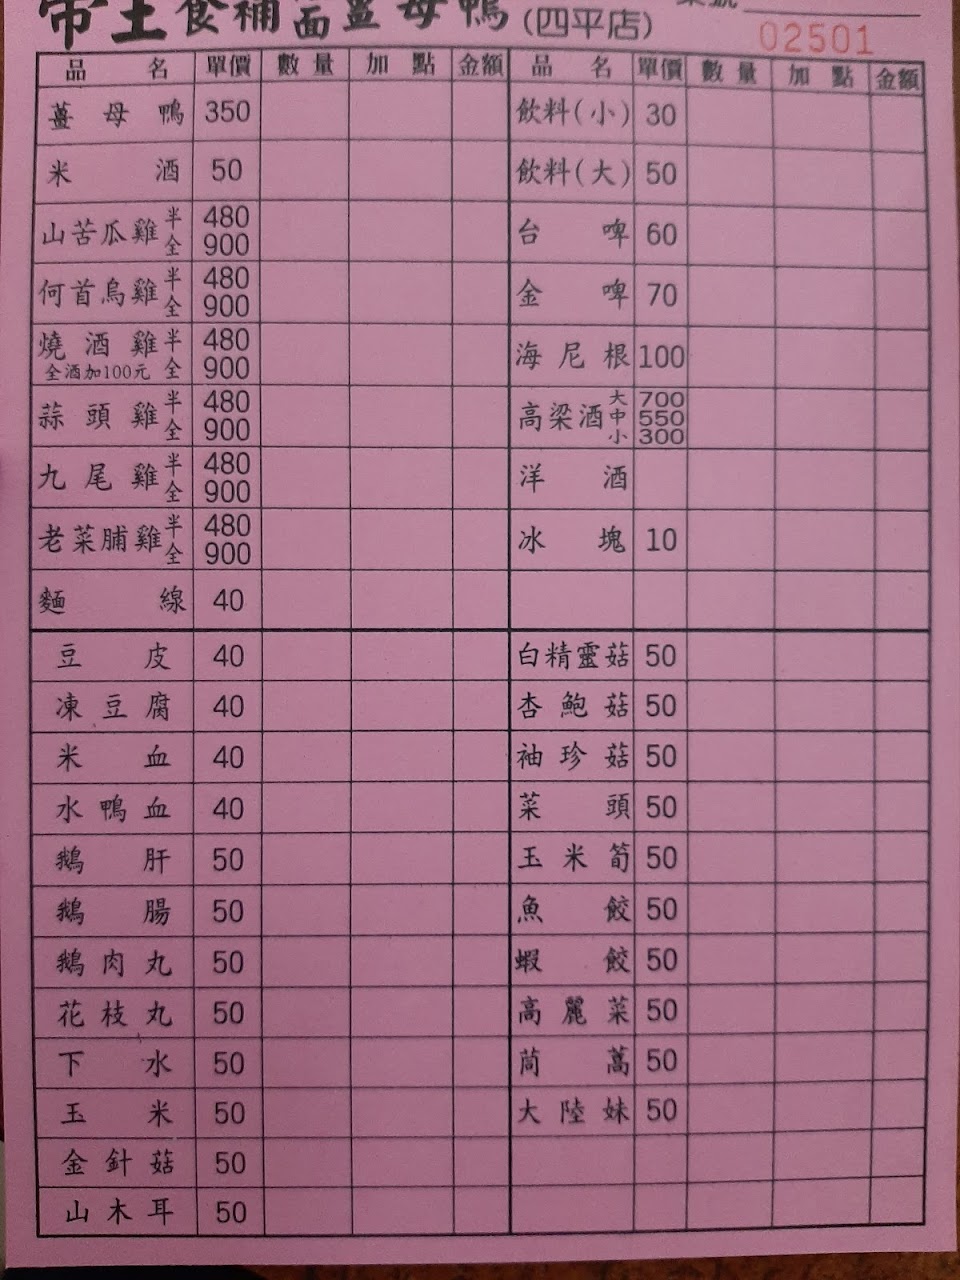 帝王食補 薑母鴨(四平店)
02501
品名 單價 數量 加點 金額 品名 單價 數量 加點 金額
薑母鴨 350 飲料(小) 30
米酒 50 飲料(大) 50
山苦瓜雞 半 480 全 900 台啤 60
何首烏雞 半 480 全 900 金啤 70
燒酒雞 半 480 全酒加100元 全 900 海尼根 100
蒜頭雞 半 480 全 900 高梁酒 大 700 中 550 小 300
九尾雞 半 480 全 900 洋酒
老菜脯雞 半 480 全 900 冰塊 10
麵線 40
豆皮 40 白精靈菇 50
凍豆腐 40 杏鮑菇 50
米血 40 袖珍菇 50
水鴨血 40 菜頭 50
鵝肝 50 玉米筍 50
鵝腸 50 魚餃 50
鵝肉丸 50 蝦餃 50
花枝丸 50 高麗菜 50
下水 50 茼蒿 50
玉米 50 大陸妹 50
金針菇 50
山木耳 50